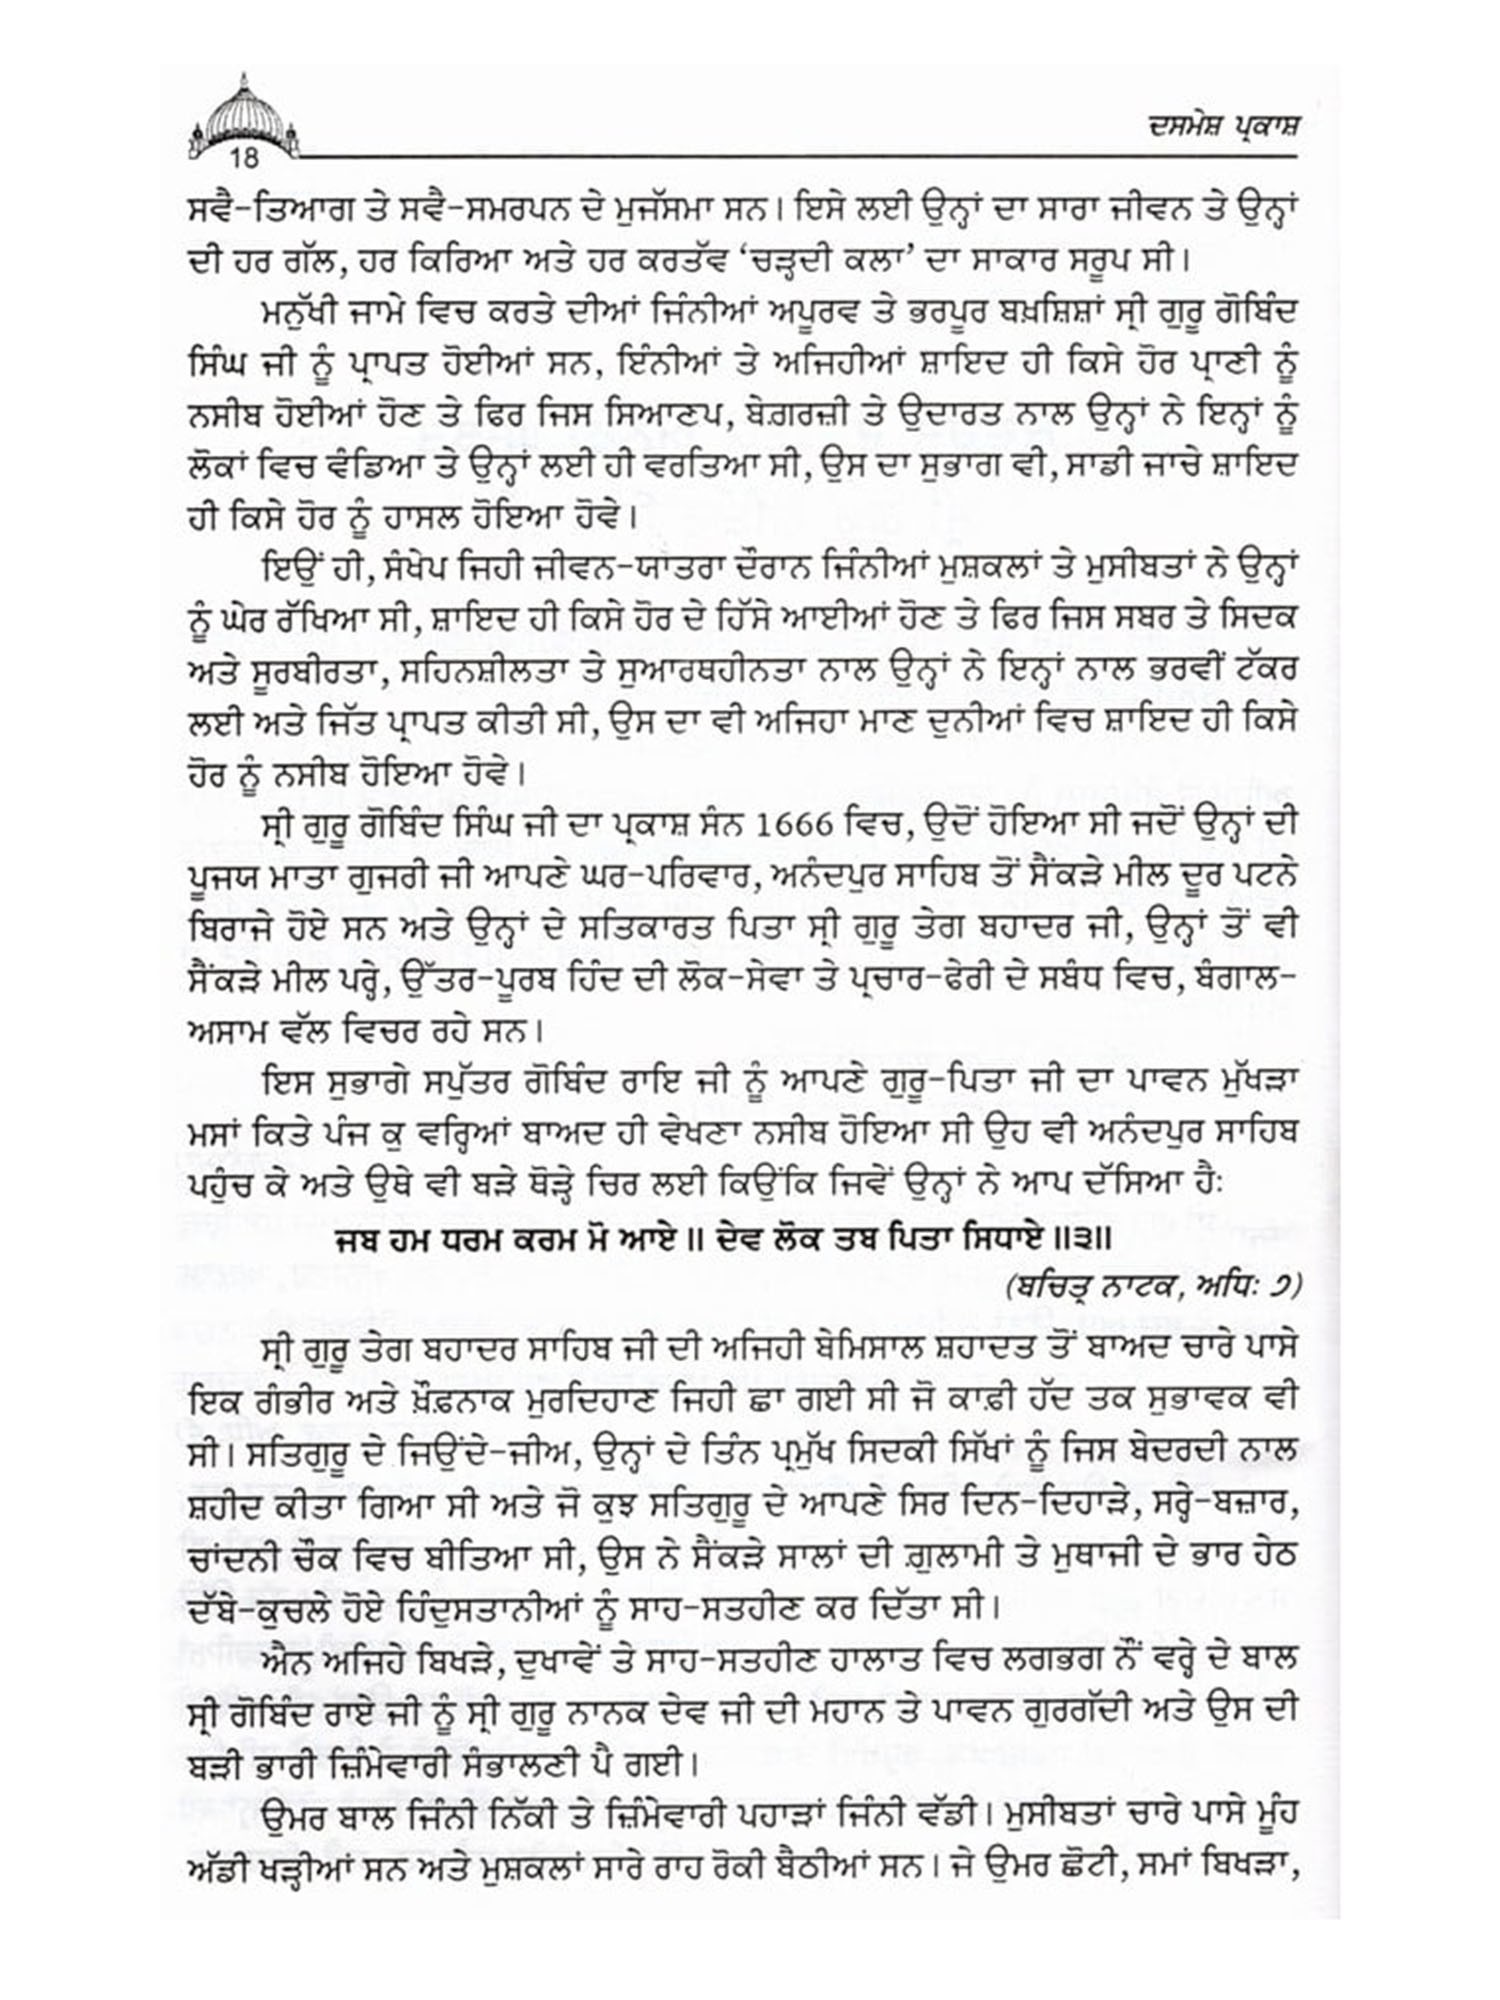 ਦਸਮੇਸ਼ ਪ੍ਰਕਾਸ਼
18
ਸਵੈ-ਤਿਆਗ ਤੇ ਸਵੈ-ਸਮਰਪਨ ਦੇ ਮੁਜੱਸਮਾ ਸਨ। ਇਸੇ ਲਈ ਉਨ੍ਹਾਂ ਦਾ ਸਾਰਾ ਜੀਵਨ ਤੇ ਉਨ੍ਹਾਂ
ਦੀ ਹਰ ਗੱਲ, ਹਰ ਕਿਰਿਆ ਅਤੇ ਹਰ ਕਰਤੱਵ ‘ਚੜ੍ਹਦੀ ਕਲਾ’ ਦਾ ਸਾਕਾਰ ਸਰੂਪ ਸੀ।
ਮਨੁੱਖੀ ਜਾਮੇ ਵਿਚ ਕਰਤੇ ਦੀਆਂ ਜਿੰਨੀਆਂ ਅਪੂਰਵ ਤੇ ਭਰਪੂਰ ਬਖ਼ਸ਼ਿਸ਼ਾਂ ਸ੍ਰੀ ਗੁਰੂ ਗੋਬਿੰਦ
ਸਿੰਘ ਜੀ ਨੂੰ ਪ੍ਰਾਪਤ ਹੋਈਆਂ ਸਨ, ਇੰਨੀਆਂ ਤੇ ਅਜਿਹੀਆਂ ਸ਼ਾਇਦ ਹੀ ਕਿਸੇ ਹੋਰ ਪ੍ਰਾਣੀ ਨੂੰ
ਨਸੀਬ ਹੋਈਆਂ ਹੋਣ ਤੇ ਫਿਰ ਜਿਸ ਸਿਆਣਪ, ਬੇਗ਼ਰਜ਼ੀ ਤੇ ਉਦਾਰਤ ਨਾਲ ਉਨ੍ਹਾਂ ਨੇ ਇਨ੍ਹਾਂ ਨੂੰ
ਲੋਕਾਂ ਵਿਚ ਵੰਡਿਆ ਤੇ ਉਨ੍ਹਾਂ ਲਈ ਹੀ ਵਰਤਿਆ ਸੀ, ਉਸ ਦਾ ਸੁਭਾਗ ਵੀ, ਸਾਡੀ ਜਾਚੇ ਸ਼ਾਇਦ
ਹੀ ਕਿਸੇ ਹੋਰ ਨੂੰ ਹਾਸਲ ਹੋਇਆ ਹੋਵੇ।
ਇਉਂ ਹੀ, ਸੰਖੇਪ ਜਿਹੀ ਜੀਵਨ-ਯਾਤਰਾ ਦੌਰਾਨ ਜਿੰਨੀਆਂ ਮੁਸ਼ਕਲਾਂ ਤੇ ਮੁਸੀਬਤਾਂ ਨੇ ਉਨ੍ਹਾਂ
ਨੂੰ ਘੇਰ ਰੱਖਿਆ ਸੀ, ਸ਼ਾਇਦ ਹੀ ਕਿਸੇ ਹੋਰ ਦੇ ਹਿੱਸੇ ਆਈਆਂ ਹੋਣ ਤੇ ਫਿਰ ਜਿਸ ਸਬਰ ਤੇ ਸਿਦਕ
ਅਤੇ ਸੂਰਬੀਰਤਾ, ਸਹਿਨਸ਼ੀਲਤਾ ਤੇ ਸੁਆਰਥਹੀਨਤਾ ਨਾਲ ਉਨ੍ਹਾਂ ਨੇ ਇਨ੍ਹਾਂ ਨਾਲ ਭਰਵੀਂ ਟੱਕਰ
ਲਈ ਅਤੇ ਜਿੱਤ ਪ੍ਰਾਪਤ ਕੀਤੀ ਸੀ, ਉਸ ਦਾ ਵੀ ਅਜਿਹਾ ਮਾਣ ਦੁਨੀਆਂ ਵਿਚ ਸ਼ਾਇਦ ਹੀ ਕਿਸੇ
ਹੋਰ ਨੂੰ ਨਸੀਬ ਹੋਇਆ ਹੋਵੇ।
ਸ੍ਰੀ ਗੁਰੂ ਗੋਬਿੰਦ ਸਿੰਘ ਜੀ ਦਾ ਪ੍ਰਕਾਸ਼ ਸੰਨ 1666 ਵਿਚ, ਉਦੋਂ ਹੋਇਆ ਸੀ ਜਦੋਂ ਉਨ੍ਹਾਂ ਦੀ
ਪੂਜਯ ਮਾਤਾ ਗੁਜਰੀ ਜੀ ਆਪਣੇ ਘਰ-ਪਰਿਵਾਰ, ਅਨੰਦਪੁਰ ਸਾਹਿਬ ਤੋਂ ਸੈਂਕੜੇ ਮੀਲ ਦੂਰ ਪਟਨੇ
ਬਿਰਾਜੇ ਹੋਏ ਸਨ ਅਤੇ ਉਨ੍ਹਾਂ ਦੇ ਸਤਿਕਾਰਤ ਪਿਤਾ ਸ੍ਰੀ ਗੁਰੂ ਤੇਗ ਬਹਾਦਰ ਜੀ, ਉਨ੍ਹਾਂ ਤੋਂ ਵੀ
ਸੈਂਕੜੇ ਮੀਲ ਪਰ੍ਹੇ, ਉੱਤਰ-ਪੂਰਬ ਹਿੰਦ ਦੀ ਲੋਕ-ਸੇਵਾ ਤੇ ਪ੍ਰਚਾਰ-ਫੇਰੀ ਦੇ ਸਬੰਧ ਵਿਚ, ਬੰਗਾਲ-
ਅਸਾਮ ਵੱਲ ਵਿਚਰ ਰਹੇ ਸਨ।
ਇਸ ਸੁਭਾਗੇ ਸਪੁੱਤਰ ਗੋਬਿੰਦ ਰਾਇ ਜੀ ਨੂੰ ਆਪਣੇ ਗੁਰੂ-ਪਿਤਾ ਜੀ ਦਾ ਪਾਵਨ ਮੁੱਖੜਾ
ਮਸਾਂ ਕਿਤੇ ਪੰਜ ਕੁ ਵਰ੍ਹਿਆਂ ਬਾਅਦ ਹੀ ਵੇਖਣਾ ਨਸੀਬ ਹੋਇਆ ਸੀ ਉਹ ਵੀ ਅਨੰਦਪੁਰ ਸਾਹਿਬ
ਪਹੁੰਚ ਕੇ ਅਤੇ ਉਥੇ ਵੀ ਬੜੇ ਥੋੜ੍ਹੇ ਚਿਰ ਲਈ ਕਿਉਂਕਿ ਜਿਵੇਂ ਉਨ੍ਹਾਂ ਨੇ ਆਪ ਦੱਸਿਆ ਹੈ:
ਜਬ ਹਮ ਧਰਮ ਕਰਮ ਮੋ ਆਏ॥ ਦੇਵ ਲੋਕ ਤਬ ਪਿਤਾ ਸਿਧਾਏ॥੩॥
(ਬਚਿਤ੍ਰ ਨਾਟਕ, ਅਧਿ: ੭)
ਸ੍ਰੀ ਗੁਰੂ ਤੇਗ ਬਹਾਦਰ ਸਾਹਿਬ ਜੀ ਦੀ ਅਜਿਹੀ ਬੇਮਿਸਾਲ ਸ਼ਹਾਦਤ ਤੋਂ ਬਾਅਦ ਚਾਰੇ ਪਾਸੇ
ਇਕ ਗੰਭੀਰ ਅਤੇ ਖ਼ੌਫ਼ਨਾਕ ਮੁਰਦਿਹਾਣ ਜਿਹੀ ਛਾ ਗਈ ਸੀ ਜੋ ਕਾਫ਼ੀ ਹੱਦ ਤਕ ਸੁਭਾਵਕ ਵੀ
ਸੀ। ਸਤਿਗੁਰੂ ਦੇ ਜਿਉਂਦੇ-ਜੀਅ, ਉਨ੍ਹਾਂ ਦੇ ਤਿੰਨ ਪ੍ਰਮੁੱਖ ਸਿਦਕੀ ਸਿੱਖਾਂ ਨੂੰ ਜਿਸ ਬੇਦਰਦੀ ਨਾਲ
ਸ਼ਹੀਦ ਕੀਤਾ ਗਿਆ ਸੀ ਅਤੇ ਜੋ ਕੁਝ ਸਤਿਗੁਰੂ ਦੇ ਆਪਣੇ ਸਿਰ ਦਿਨ-ਦਿਹਾੜੇ, ਸਰ੍ਹੇ-ਬਜ਼ਾਰ,
ਚਾਂਦਨੀ ਚੌਕ ਵਿਚ ਬੀਤਿਆ ਸੀ, ਉਸ ਨੇ ਸੈਂਕੜੇ ਸਾਲਾਂ ਦੀ ਗ਼ੁਲਾਮੀ ਤੇ ਮੁਥਾਜੀ ਦੇ ਭਾਰ ਹੇਠ
ਦੱਬੇ-ਕੁਚਲੇ ਹੋਏ ਹਿੰਦੁਸਤਾਨੀਆਂ ਨੂੰ ਸਾਹ-ਸਤਹੀਣ ਕਰ ਦਿੱਤਾ ਸੀ।
ਐਨ ਅਜਿਹੇ ਬਿਖੜੇ, ਦੁਖਾਵੇਂ ਤੇ ਸਾਹ-ਸਤਹੀਣ ਹਾਲਾਤ ਵਿਚ ਲਗਭਗ ਨੌਂ ਵਰ੍ਹੇ ਦੇ ਬਾਲ
ਸ੍ਰੀ ਗੋਬਿੰਦ ਰਾਏ ਜੀ ਨੂੰ ਸ੍ਰੀ ਗੁਰੂ ਨਾਨਕ ਦੇਵ ਜੀ ਦੀ ਮਹਾਨ ਤੇ ਪਾਵਨ ਗੁਰਗੱਦੀ ਅਤੇ ਉਸ ਦੀ
ਬੜੀ ਭਾਰੀ ਜ਼ਿੰਮੇਵਾਰੀ ਸੰਭਾਲਣੀ ਪੈ ਗਈ।
ਉਮਰ ਬਾਲ ਜਿੰਨੀ ਨਿੱਕੀ ਤੇ ਜ਼ਿੰਮੇਵਾਰੀ ਪਹਾੜਾਂ ਜਿੰਨੀ ਵੱਡੀ। ਮੁਸੀਬਤਾਂ ਚਾਰੇ ਪਾਸੇ ਮੂੰਹ
ਅੱਡੀ ਖੜ੍ਹੀਆਂ ਸਨ ਅਤੇ ਮੁਸ਼ਕਲਾਂ ਸਾਰੇ ਰਾਹ ਰੋਕੀ ਬੈਠੀਆਂ ਸਨ। ਜੇ ਉਮਰ ਛੋਟੀ, ਸਮਾਂ ਬਿਖੜਾ,